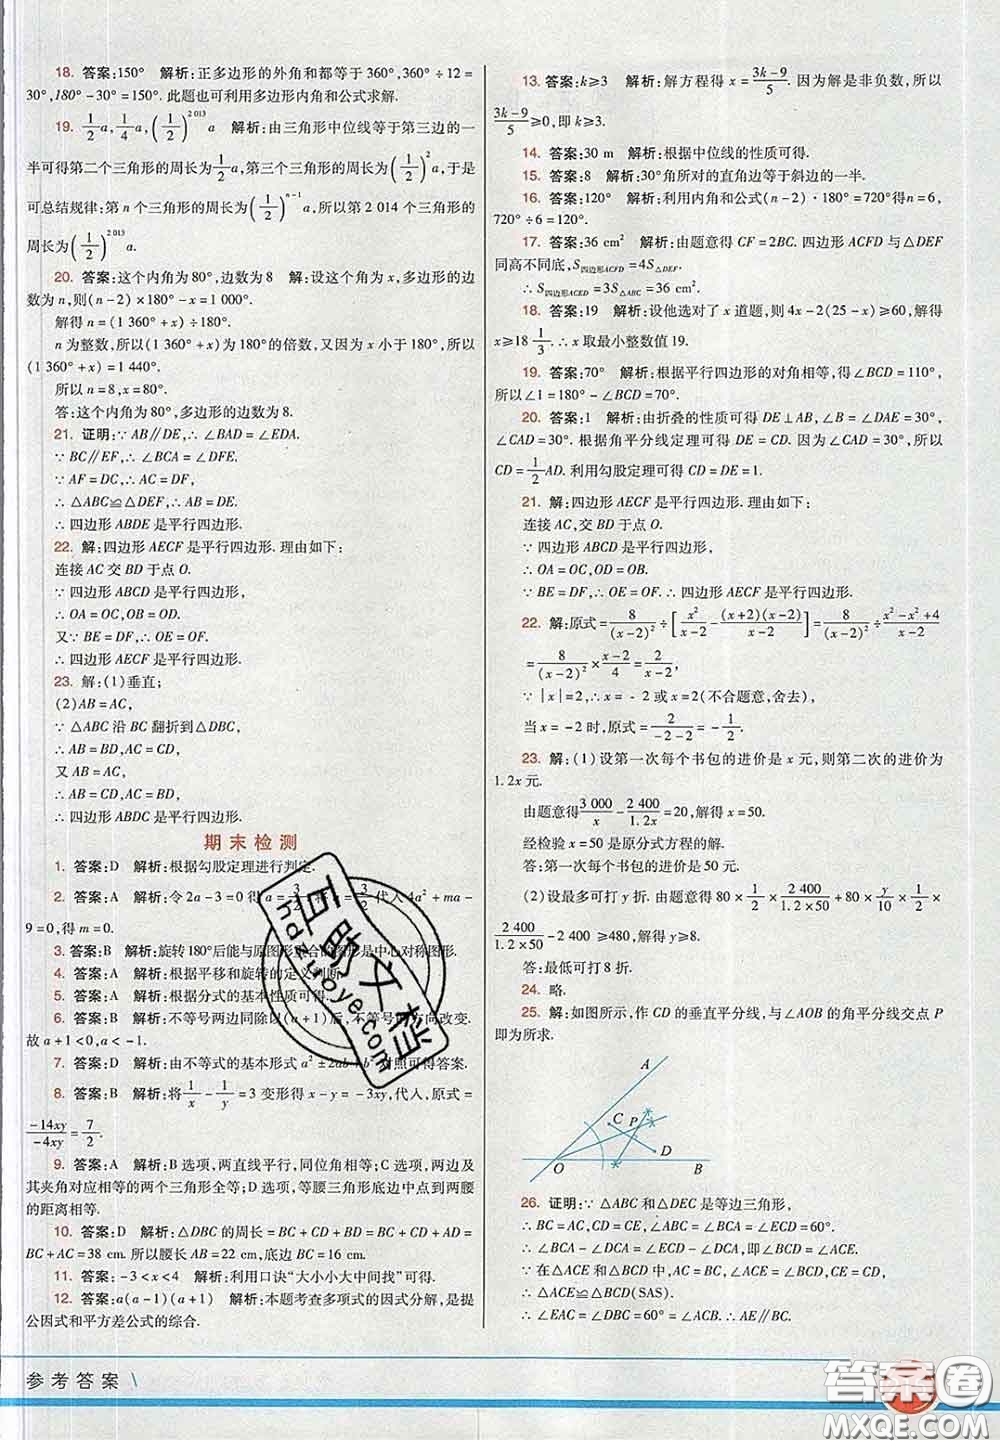 18. 答案:150° 解析:正多边形的外角和都等于360°,360°÷12=
30°,180°-30°=150°. 此题也可利用多边形内角和公式求解.
19. 1/2 a, 1/4 a, (1/2)^2013 a 解析:由三角形中位线等于第三边的一
半可得第二个三角形的周长为1/2 a,第三个三角形的周长为(1/2)^2 a,于是
可总结规律:第 n 个三角形的周长为(1/2)^(n-1) a,所以第 2 014 个三角形的
周长为(1/2)^2013 a.
20. 答案:这个内角为80°,边数为8 解:设这个角为 x,多边形的边
数为 n,则(n-2)×180°-x=1 000°.
解得 n=(1 360°+x)÷180°.
n 为整数,所以(1 360°+x)为180°的倍数,又因为 x 小于180°,所以
(1 360°+x)=1 440°.
所以 n=8,x=80°.
答:这个内角为80°,多边形的边数为8.
21. 证明:∵AB∥DE,∴∠BAD=∠EDA.
∵BC∥EF,∴∠BCA=∠DFE.
∵AF=DC,∴AC=DF.
∴△ABC≌△DEF,∴AB=DE.
∴四边形 ABDE 是平行四边形.
22. 解:四边形 AECF 是平行四边形. 理由如下:
连接 AC 交 BD 于点 O.
∵四边形 ABCD 是平行四边形,
∴OA=OC,OB=OD.
又∵BE=DF,∴OE=OF.
∴四边形 AECF 是平行四边形.
23. 解:(1)垂直;
(2)AB=AC,
∵△ABC 沿 BC 翻折到△DBC,
∴AB=BD,AC=CD,
又 AB=AC,
∴AB=BD=AC=CD,
∴四边形 ABDC 是平行四边形.
期末检测
1. 答案:D 解析:根据勾股定理进行判定.
2. 答案:A 解析:令2a-3=0得 a=3/2,将 3/2代入4a²+ma-
9=0,得 m=0.
3. 答案:B 解析:旋转180°后能与原图形重合的图形是中心对称图形.
4. 答案:A 解析:根据平移和旋转的定义判断.
5. 答案:A 解析:根据分式的基本性质可得.
6. 答案:B 解析:不等号两边同除以(a+1)后,不等号方向改变.
故 a+1<0,a<-1.
7. 答案:D 解析:由不等式的基本形式 a²±2ab+b²对照可得答案.
8. 答案:B 解析:将1/x-1/y=3 变形得 x-y=-3xy,代入,原式=
-14xy/-4xy=7/2.
9. 答案:A 解析:B 选项,两直线平行,同位角相等;C 选项,两边及
其夹角对应相等的两个三角形全等;D 选项,等腰三角形底边中点到两腰
的距离相等.
10. 答案:D 解析:△DBC 的周长=BC+CD+BD=BC+CD+AD=
BC+AC=38 cm. 所以腰长 AB=22 cm,底边 BC=16 cm.
11. 答案:-3<x<4 解析:利用口诀“大小小大中间找”可得.
12. 答案:a(a-1)(a+1) 解析:本题考查多项式的因式分解,是提
公因式和平方差公式的综合.
13. 答案:k≥3 解析:解方程得 x=(3k-9)/5. 因为解是非负数,所以
(3k-9)/5≥0,即 k≥3.
14. 答案:30 m 解析:根据中位线的性质可得.
15. 答案:8 解析:30°角所对的直角边等于斜边的一半.
16. 答案:120° 解析:利用内角和公式(n-2)·180°=720°得 n=6,
720°÷6=120°.
17. 答案:36 cm² 解析:由题意得 CF=2BC. 四边形 ACFD 与△DEF
同高不同底,S四边形ACFD=4S△DEF.
∴S四边形ACED=3S△ABC=36 cm².
18. 答案:19 解析:设他选对了 x 道题,则 4x-2(25-x)≥60,解得
x≥18 1/3. ∴x 取最小整数值 19.
19. 答案:70° 解析:根据平行四边形的对角相等,得∠BCD=110°,
所以∠1=180°-∠BCD=70°.
20. 答案:1 解析:由折叠的性质可得 DE⊥AB,∠B=∠DAE=30°,
∠CAD=30°. 根据角平分线定理可得 DE=CD. 因为∠CAD=30°,所以
CD=1/2 AD. 利用勾股定理可得 CD=DE=1.
21. 解:四边形 AECF 是平行四边形. 理由如下:
连接 AC,交 BD 于点 O.
∵四边形 ABCD 是平行四边形,
∴OA=OC,OD=OB.
∵BE=DF,∴OE=OF,∴四边形 AECF 是平行四边形.
22. 解:原式=8/(x-2)²÷[x²/(x-2)-(x+2)(x-2)/(x-2)]=8/(x-2)²÷(x²-x²+4)/(x-2)
=8/(x-2)²×(x-2)/4=2/(x-2),
∵|x|=2,∴x=-2 或 x=2(不合题意,舍去),
当 x=-2 时,原式=2/(-2-2)=-1/2.
23. 解:(1)设第一次每个书包的进价是 x 元,则第二次的进价为
1.2x 元.
由题意得3 000/x-2 400/1.2x=20,解得 x=50.
经检验 x=50 是原分式方程的解.
答:第一次每个书包的进价是 50 元.
(2)设最多可打 y 折. 由题意得 80×1/2×2 400/(1.2×50)+80×y/10×1/2×
2 400/(1.2×50)-2 400≥480,解得 y≥8.
答:最低可打 8 折.
24. 略.
25. 解:如图所示,作 CD 的垂直平分线,与∠AOB 的角平分线交点 P
即为所求.
A
C P
D
O B
26. 证明:∵△ABC 和△DEC 是等边三角形,
∴BC=AC,CD=CE,∠BCA=∠ECD=60°.
∴∠BCA-∠DCA=∠ECD-∠DCA,即∠BCD=∠ACE.
∵在△ACE 和△BCD 中,AC=BC,∠ACE=∠BCD,CE=CD,
∴△ACE≌△BCD(SAS).
∴∠EAC=∠DBC=60°=∠ACB. ∴AE∥BC.
参考答案
互助文档
hdzuoye.com
答案圈
MXQE.COM